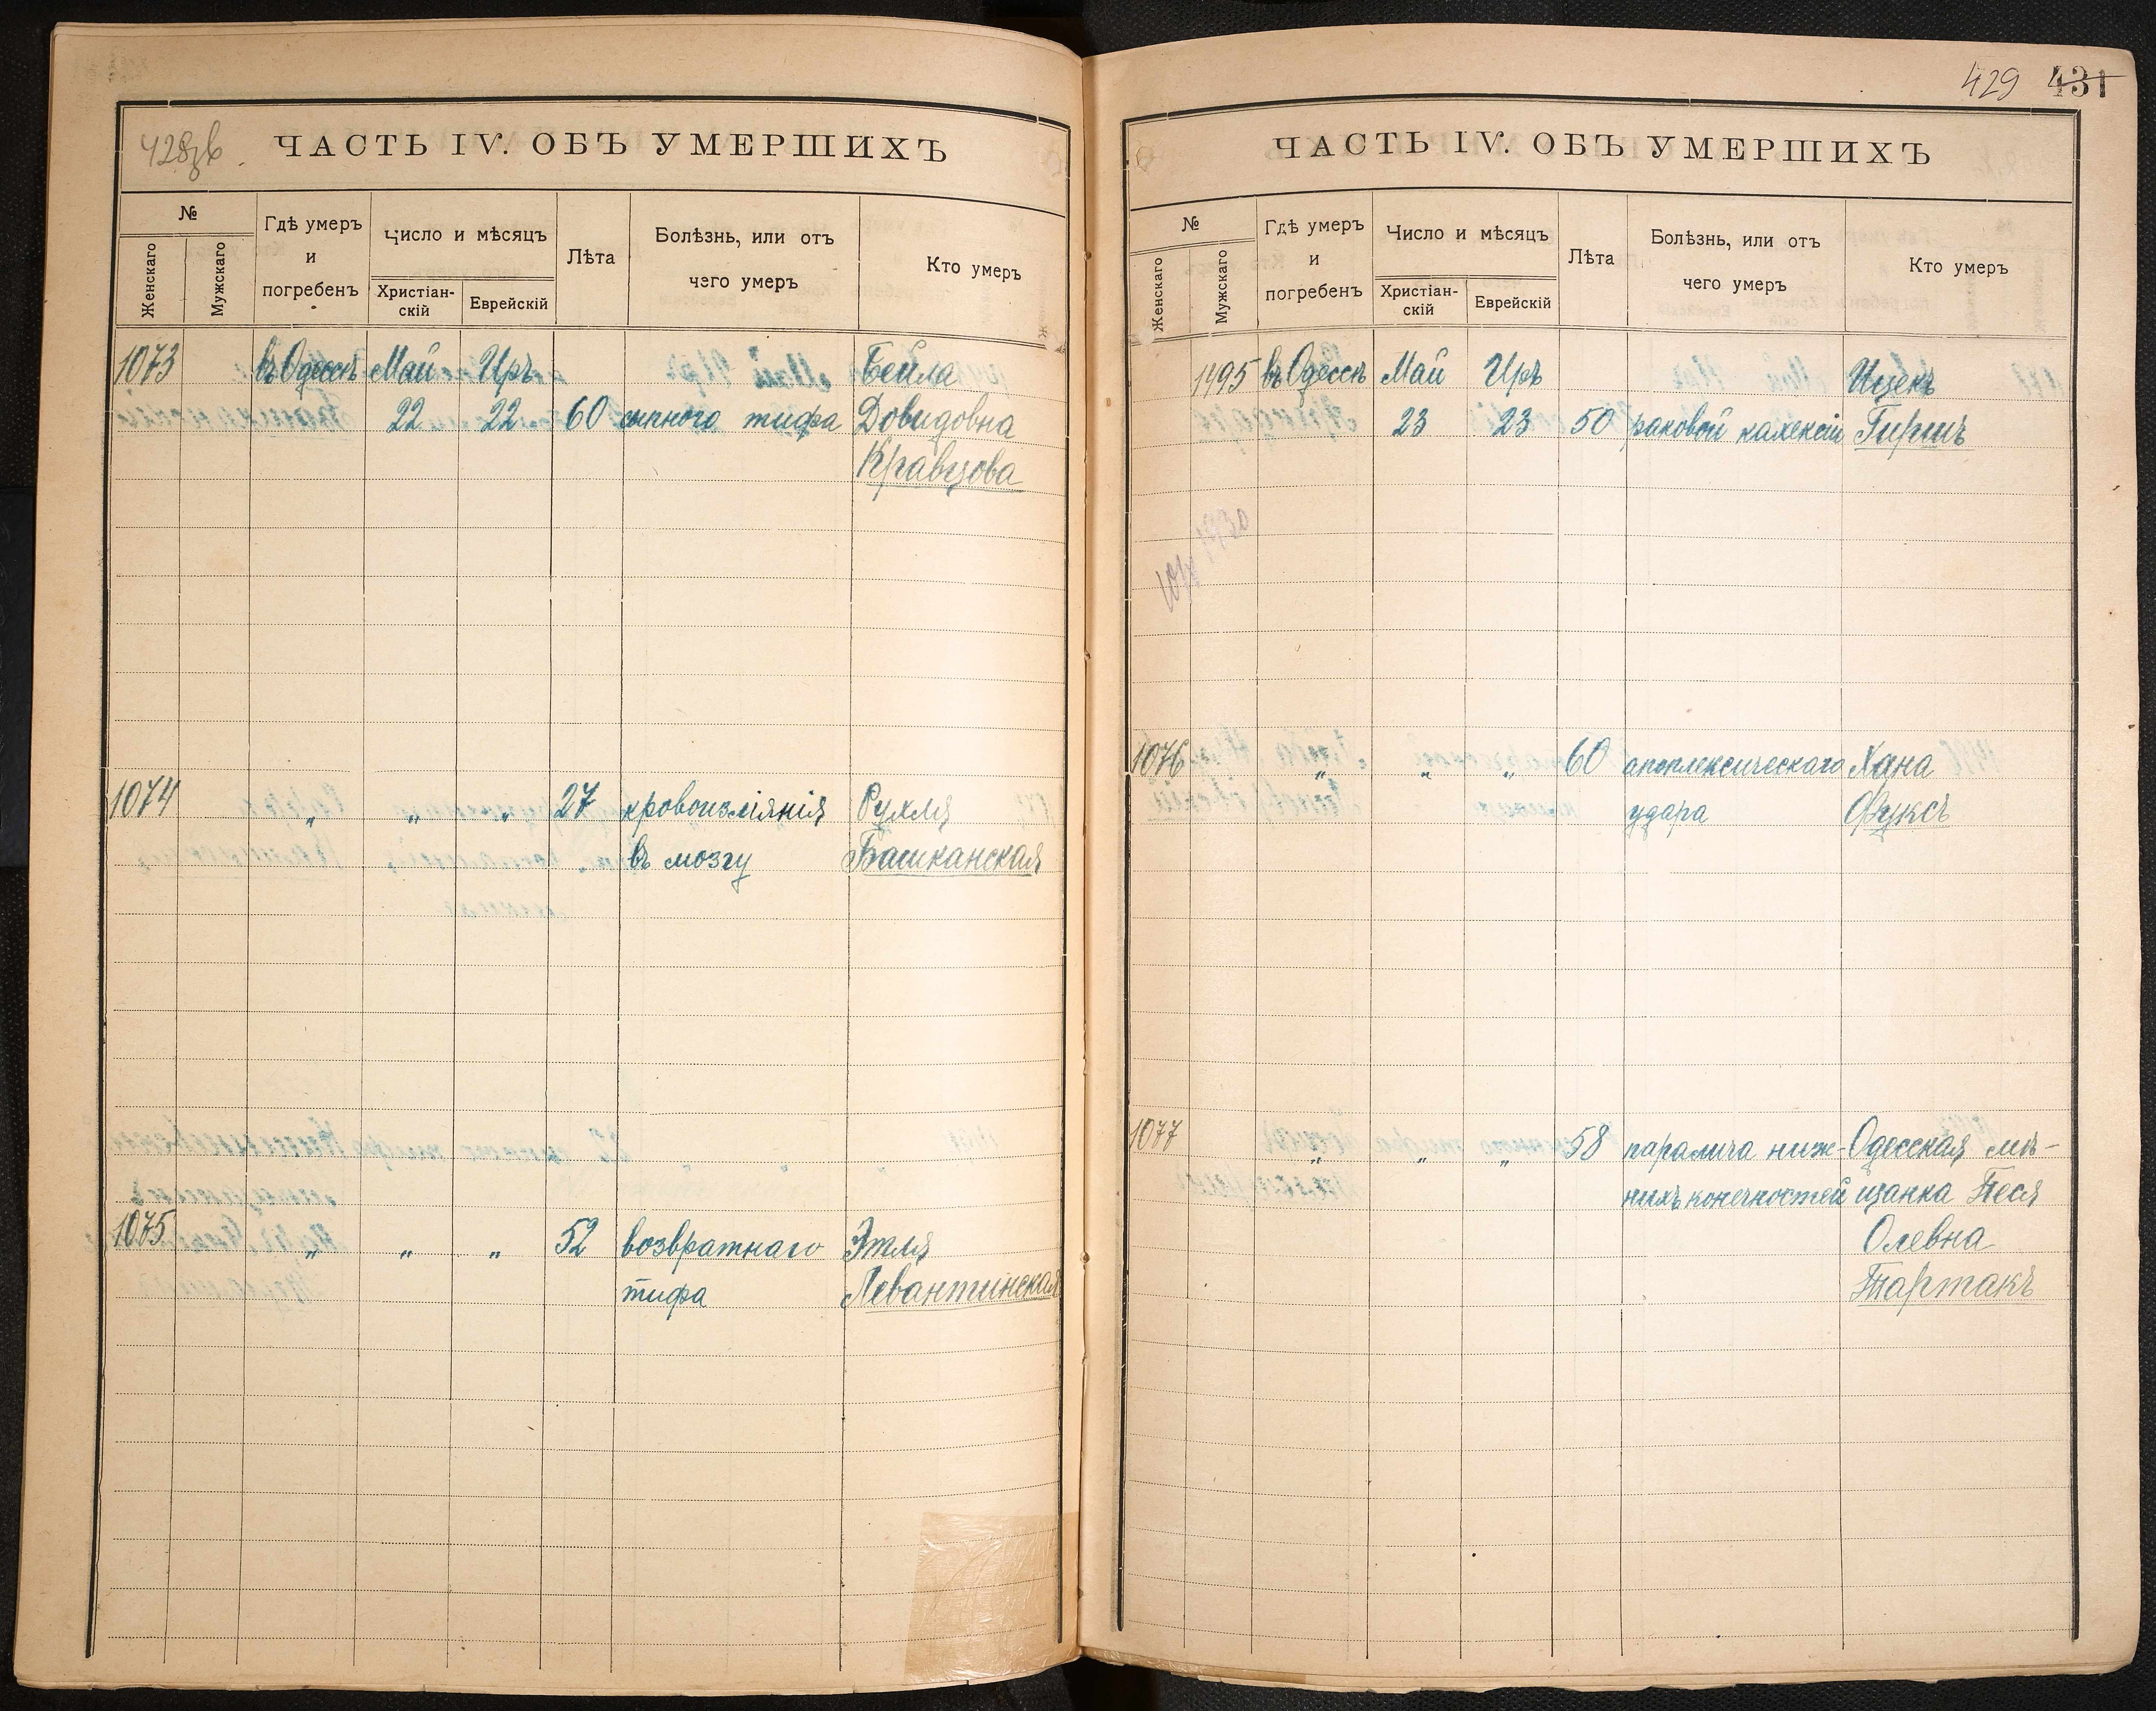 428зв.
ЧАСТЬ IV. ОБЪ УМЕРШИХЪ
№
Женскаго
Мужскаго
Гдѣ умеръ
и
погребенъ
Число и мѣсяцъ
Христіан-
скій
Еврейскій
Лѣта
Болѣзнь, или отъ
чего умеръ
Кто умеръ
1073 въ Одессѣ Май Иръ Бейла
22 22 60 сыпного тифа Довидовна
Кравцова
1074 „ „ „ 27 кровоизліянія Рухля
въ мозгу Башканская
1075 „ „ „ 52 возвратнаго Этля
тифа Левантинская
429 431
ЧАСТЬ IV. ОБЪ УМЕРШИХЪ
№
Женскаго
Мужскаго
Гдѣ умеръ
и
погребенъ
Число и мѣсяцъ
Христіан-
скій
Еврейскій
Лѣта
Болѣзнь, или отъ
чего умеръ
Кто умеръ
1495 въ Одессѣ Май Иръ Ицекъ
23 23 50 раковой кахексіи Гиршъ
1076 „ „ „ 60 апоплексическаго Хана
удара Фуксъ
1077 „ „ „ 58 паралича ниж- Одесская мѣ-
нихъ конечностей щанка Песя
Олевна
Тартакъ